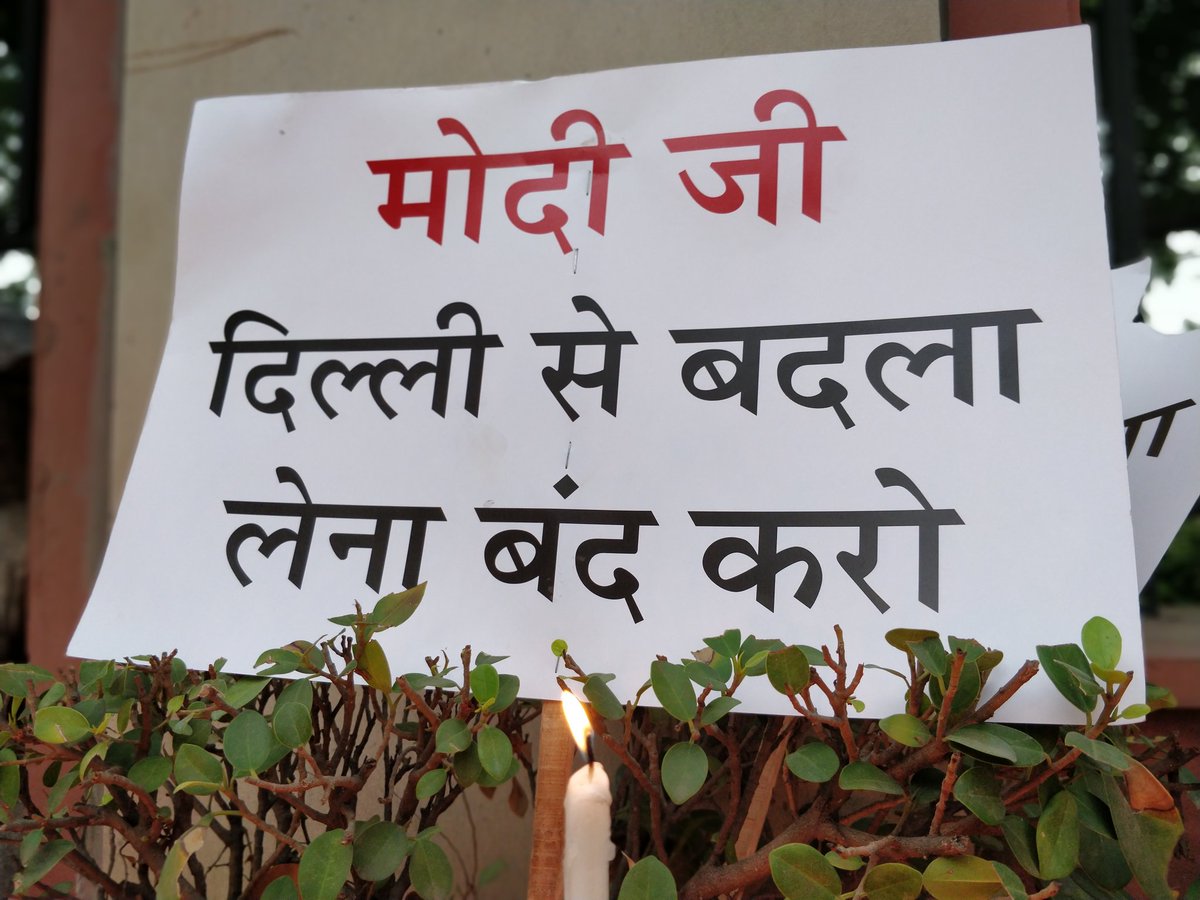 मोदी जी
दिल्ली से बदला
लेना बंद करो